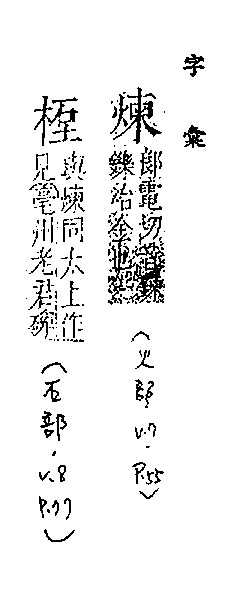 字彙
煉
郎電切
鑠治金也
(火部 v.7. P.55)
與煉同太上作
見亳州老君碑
(石部. v.8 P.77)